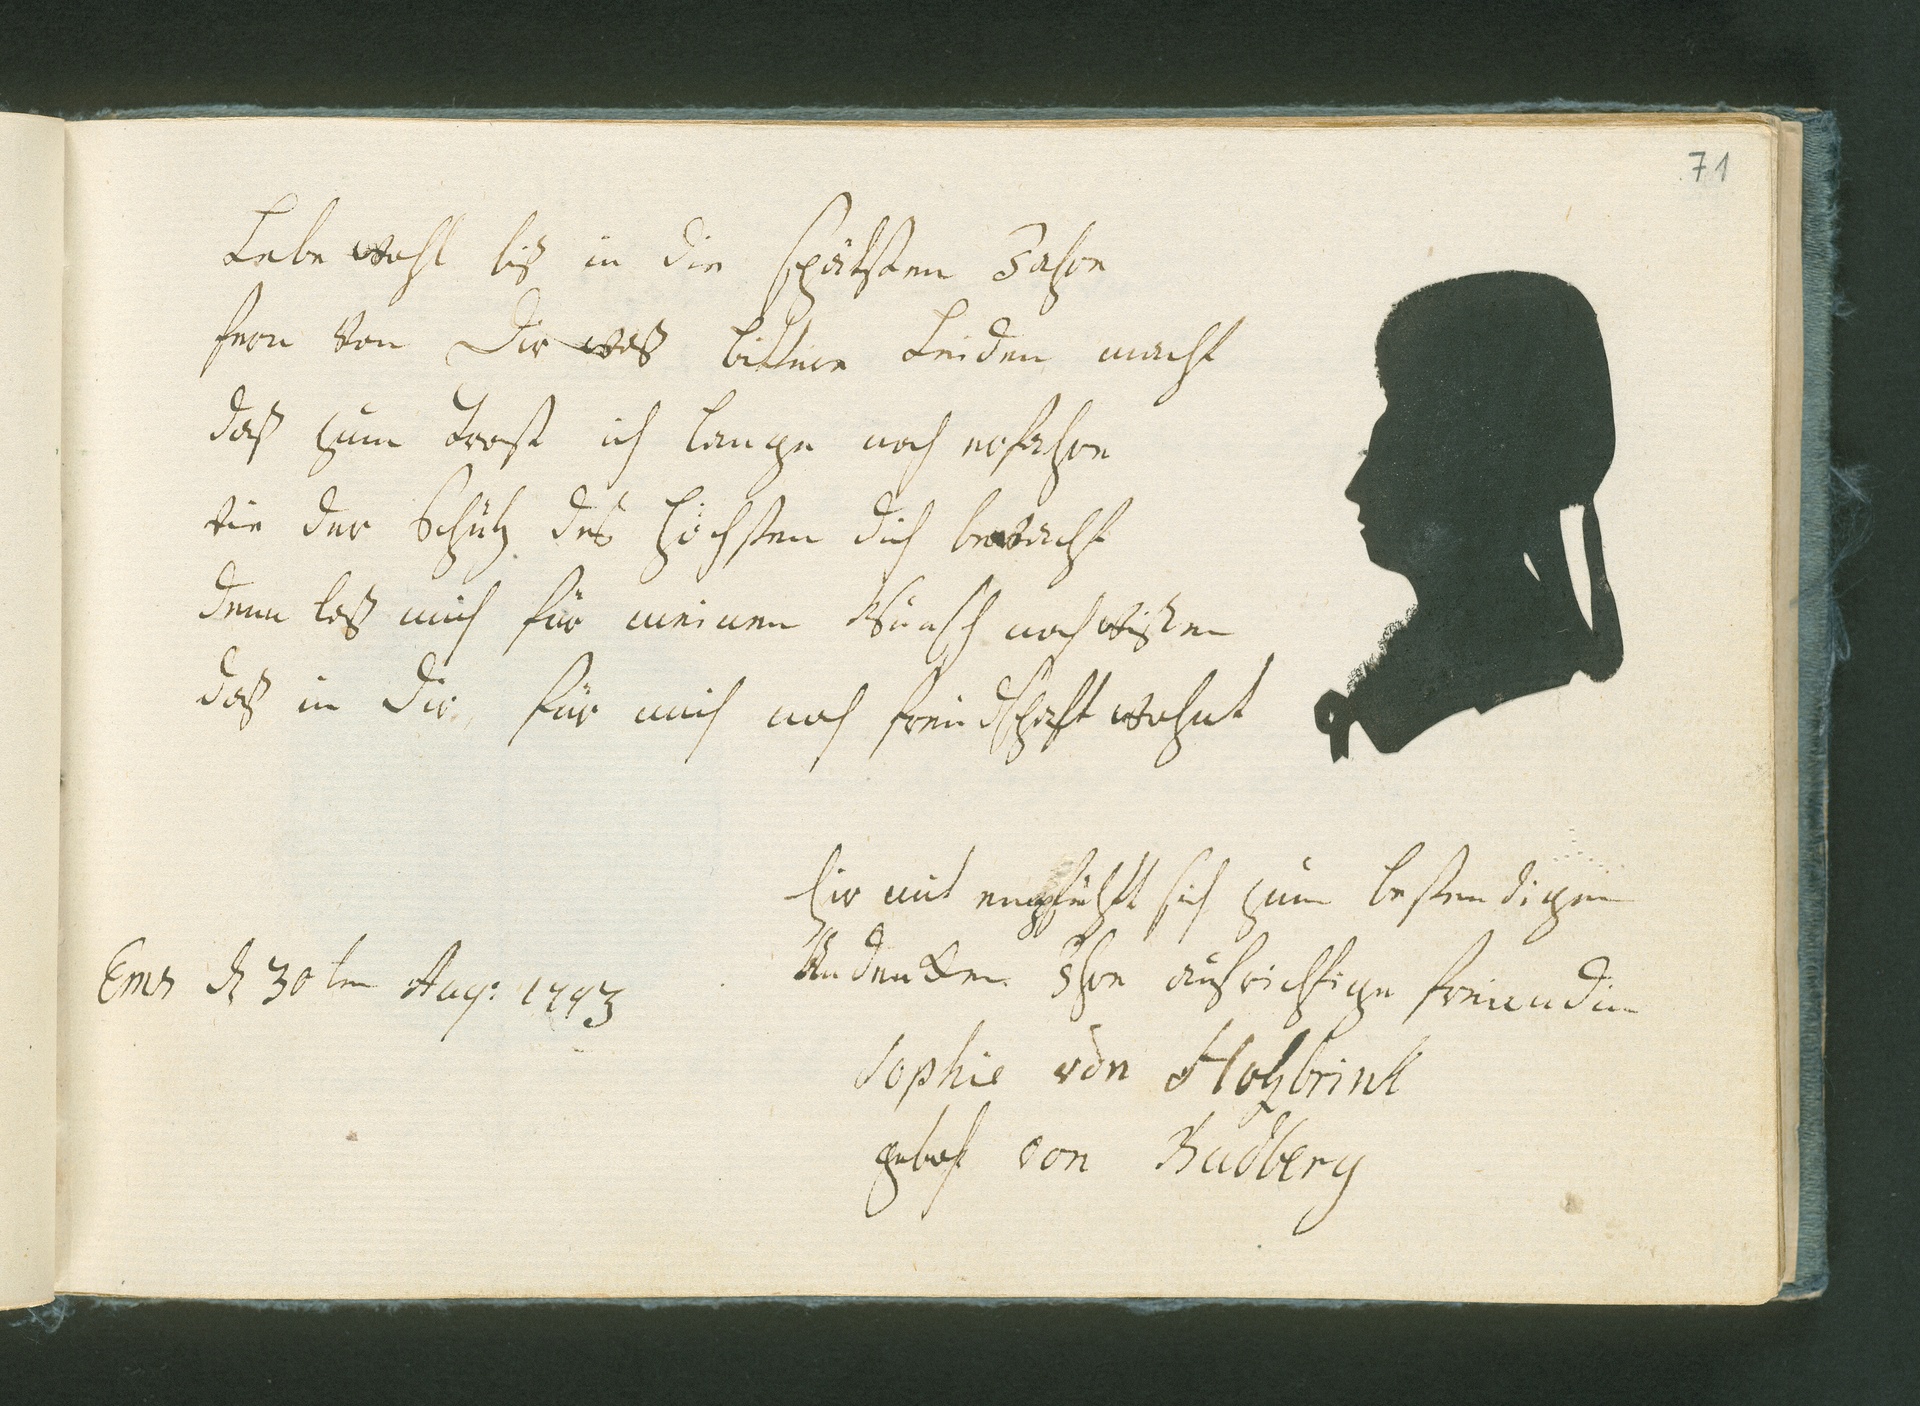 71
Lebe wohl bis in die spätsten Jahre
fern von Dir was bittere Leiden macht
daß zum Trost ich lange noch erfahre
wie der Schutz des höchsten dich bewacht
denn laß mich für meinen Wunsch noch wißen
daß in Dir, für mich noch freundschaft wohnt
hir mit empfiehlt sich zum bestendigen
Andenken Ihre aufrichtige freundin
Ems d 30ten Aug: 1793
Sophie von Holzbrink
von Budberg